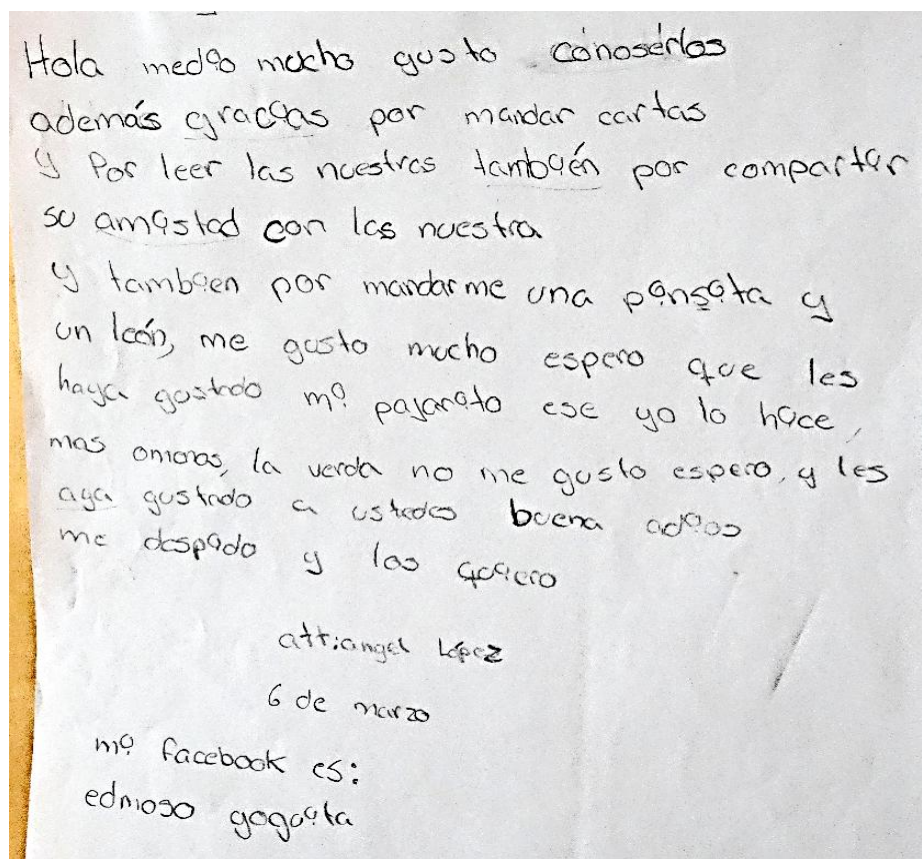 Hola medio mucho gusto cónosérlos
además gracias por mandar cartas
y Por leer las nuestras también por compartir
su amistad con las nuestra
y tambien por mandarme una pinsata y
un león, me gusto mucho espero que les
haya gustado mi pajarito ese yo lo hice,
mas la verda no me gusto espero, y les
aya gustado a ustedes buena adios
me despido y los quiero
att:angel López
6 de marzo
mi facebook es:
edmoso gogoita